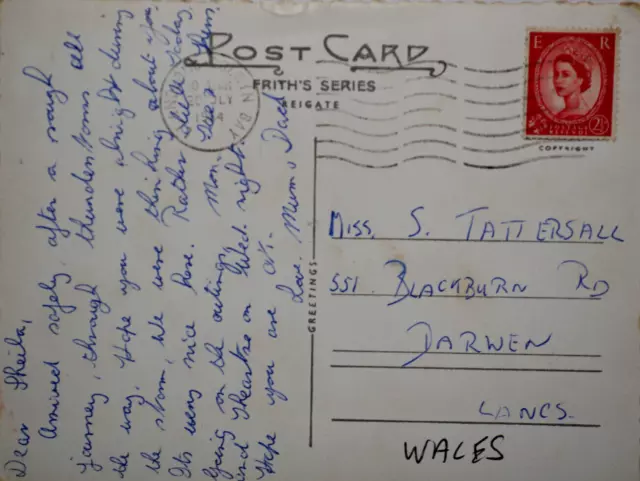 POST CARD
FRITH'S SERIES
REIGATE
E R
2½
COPYRIGHT
GREETINGS
Dear Sheila,
Arrived safely after a rough
journey, through thunderstorms all
the way. Hope you were alright during
the storm, we were thinking about you.
Its very nice here. Rather dull today.
Going on the outings, Mon. Tues Thurs,
and theatre on Wed. night.
Hope you are O.K.
Love. Mum & Dad
MISS. S. TATTERSALL
551 BLACKBURN RD
DARWEN
LANCS.
WALES